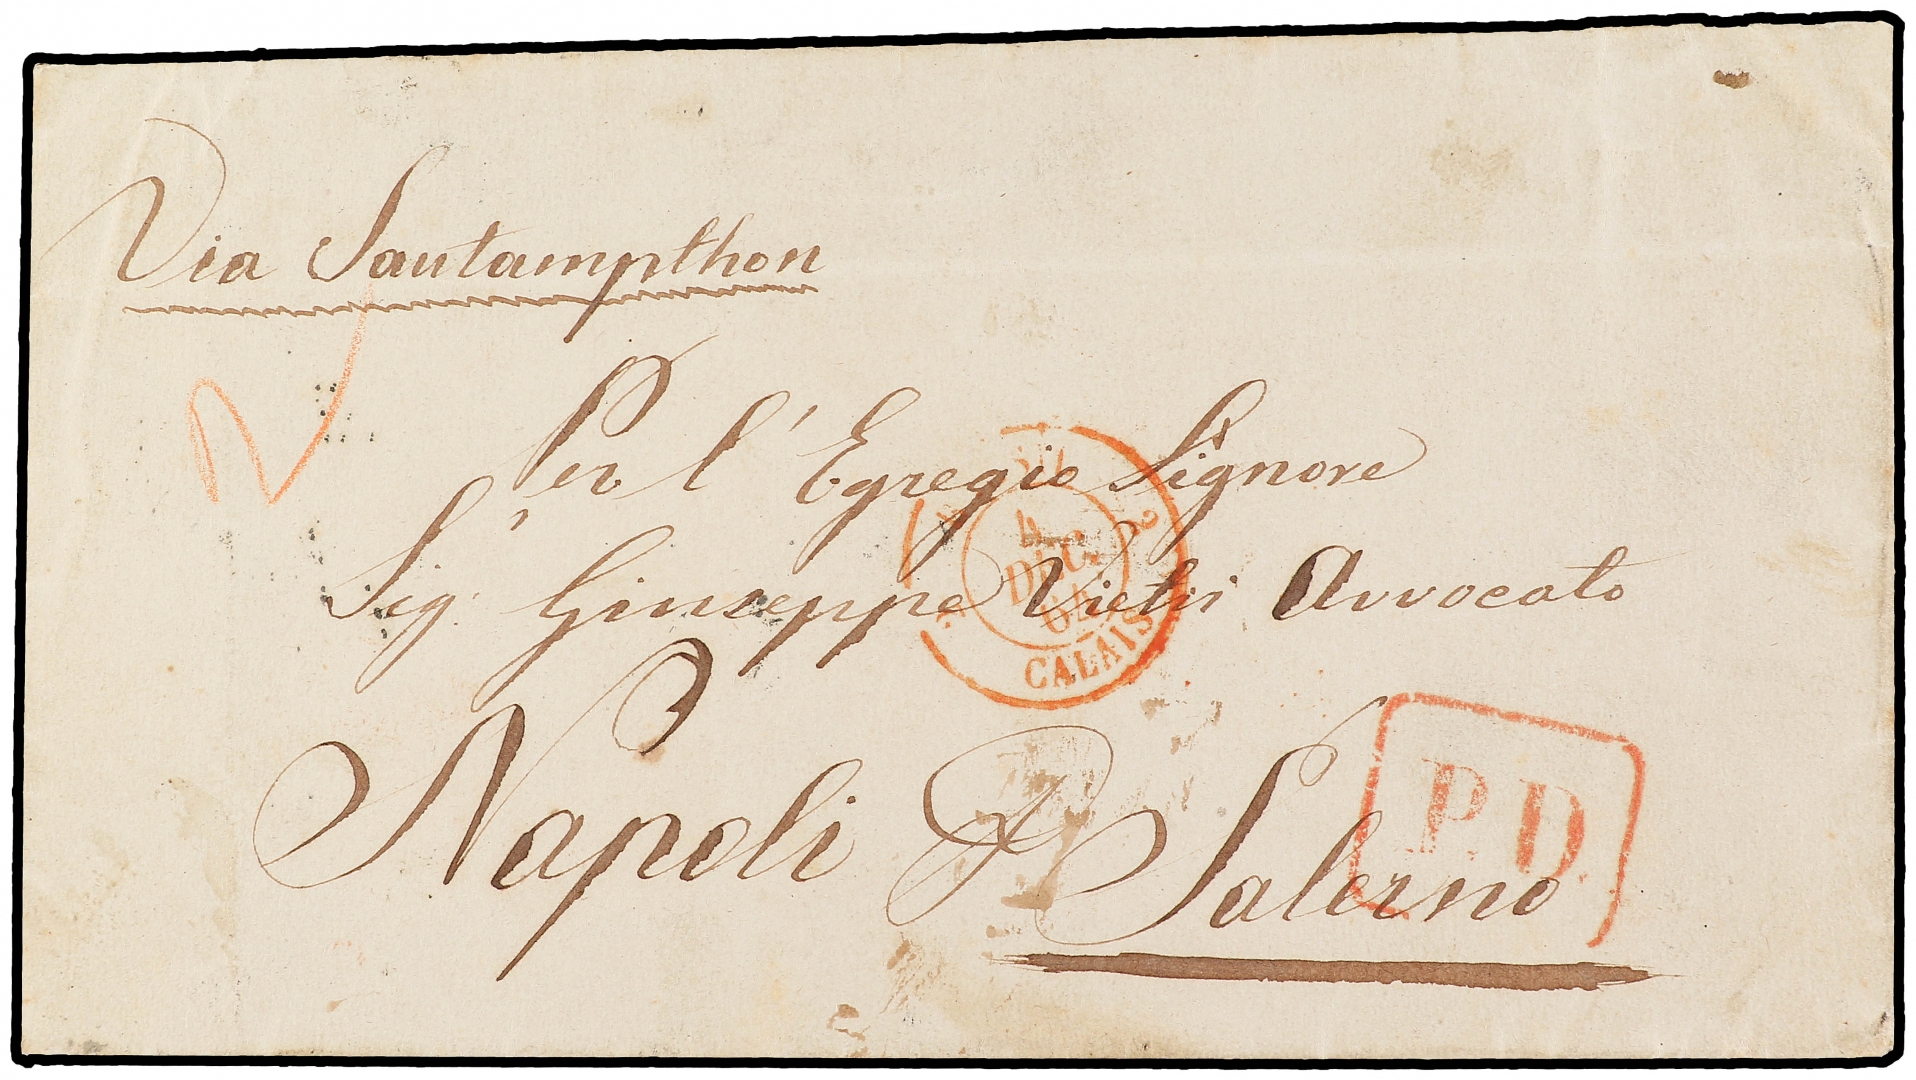 Via Sautampthon
Per l'Egregio Signore
Sig. Giuseppe Vietri Avvocato
Napoli P Salerno
4
DEC.
64
CALAIS
2
P.D.